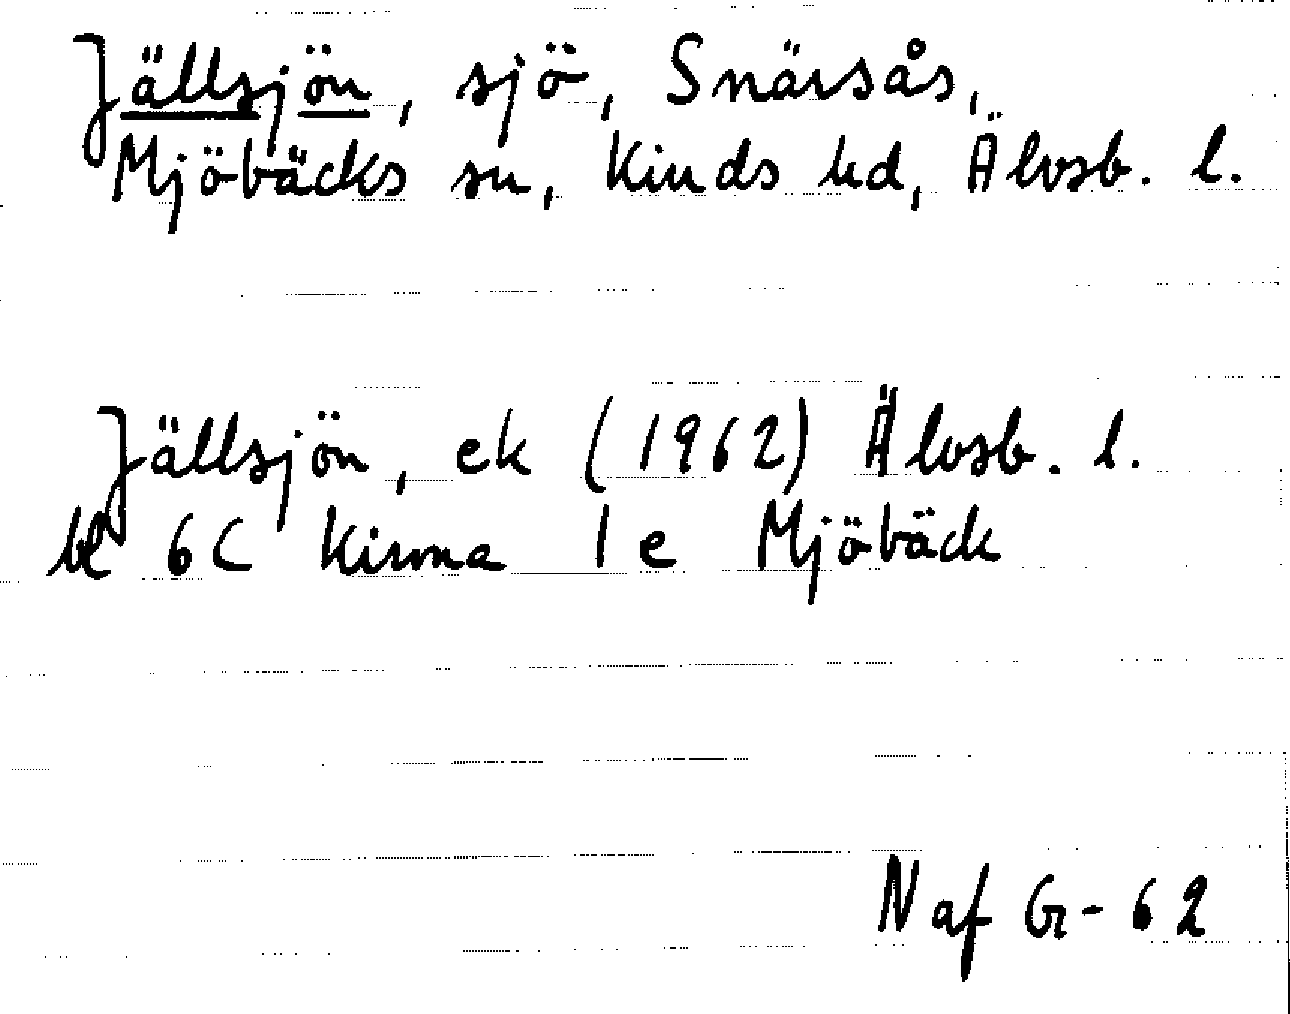 Jällsjön, sjö, Snärsås,
Mjöbäcks sn, Kinds hd, Älvsb. l.
Jällsjön, ek (1962) Älvsb. l.
bl 6C Kinna 1 e Mjöbäck
Naf Gr-62